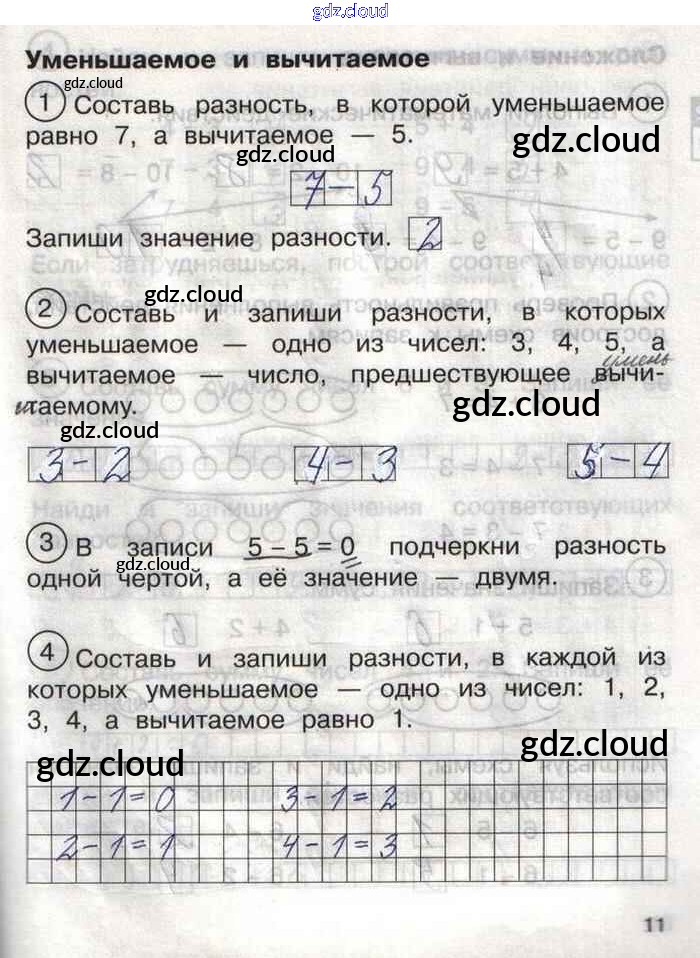 gdz.cloud
Уменьшаемое и вычитаемое
gdz.cloud
1 Составь разность, в которой уменьшаемое
равно 7, а вычитаемое — 5.
gdz.cloud
gdz.cloud
7 – 5
Запиши значение разности. 2
gdz.cloud
2 Составь и запиши разности, в которых
уменьшаемое — одно из чисел: 3, 4, 5, а
умень
вычитаемое — число, предшествующее вычи-
таемому.
gdz.cloud
gdz.cloud
3 – 2 4 – 3 5 – 4
3 В записи 5 – 5 = 0 подчеркни разность
gdz.cloud
одной чертой, а её значение — двумя.
4 Составь и запиши разности, в каждой из
которых уменьшаемое — одно из чисел: 1, 2,
3, 4, а вычитаемое равно 1.
gdz.cloud
gdz.cloud
1 – 1 = 0 3 – 1 = 2
2 – 1 = 1 4 – 1 = 3
11